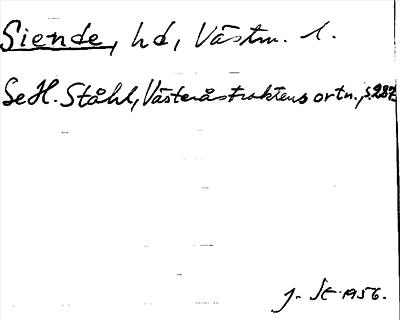 Siende, hd, Västm. l.
Se H. Ståhl, Västeråstraktens ortn., s. 287
J. St. 1956.